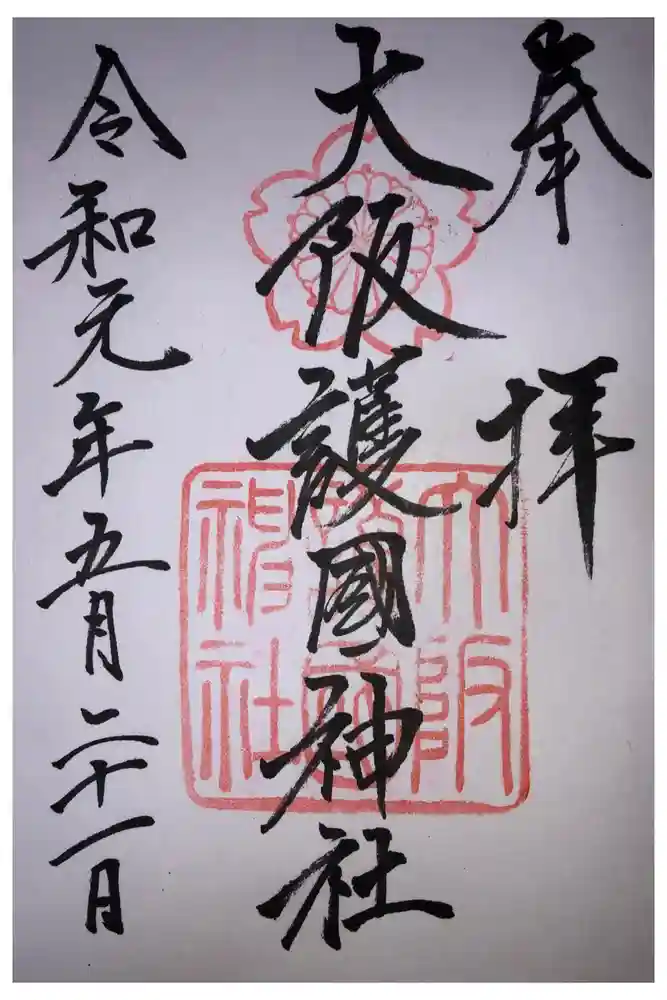 奉拝
大阪護國神社
大阪護國神社
令和元年五月二十一日